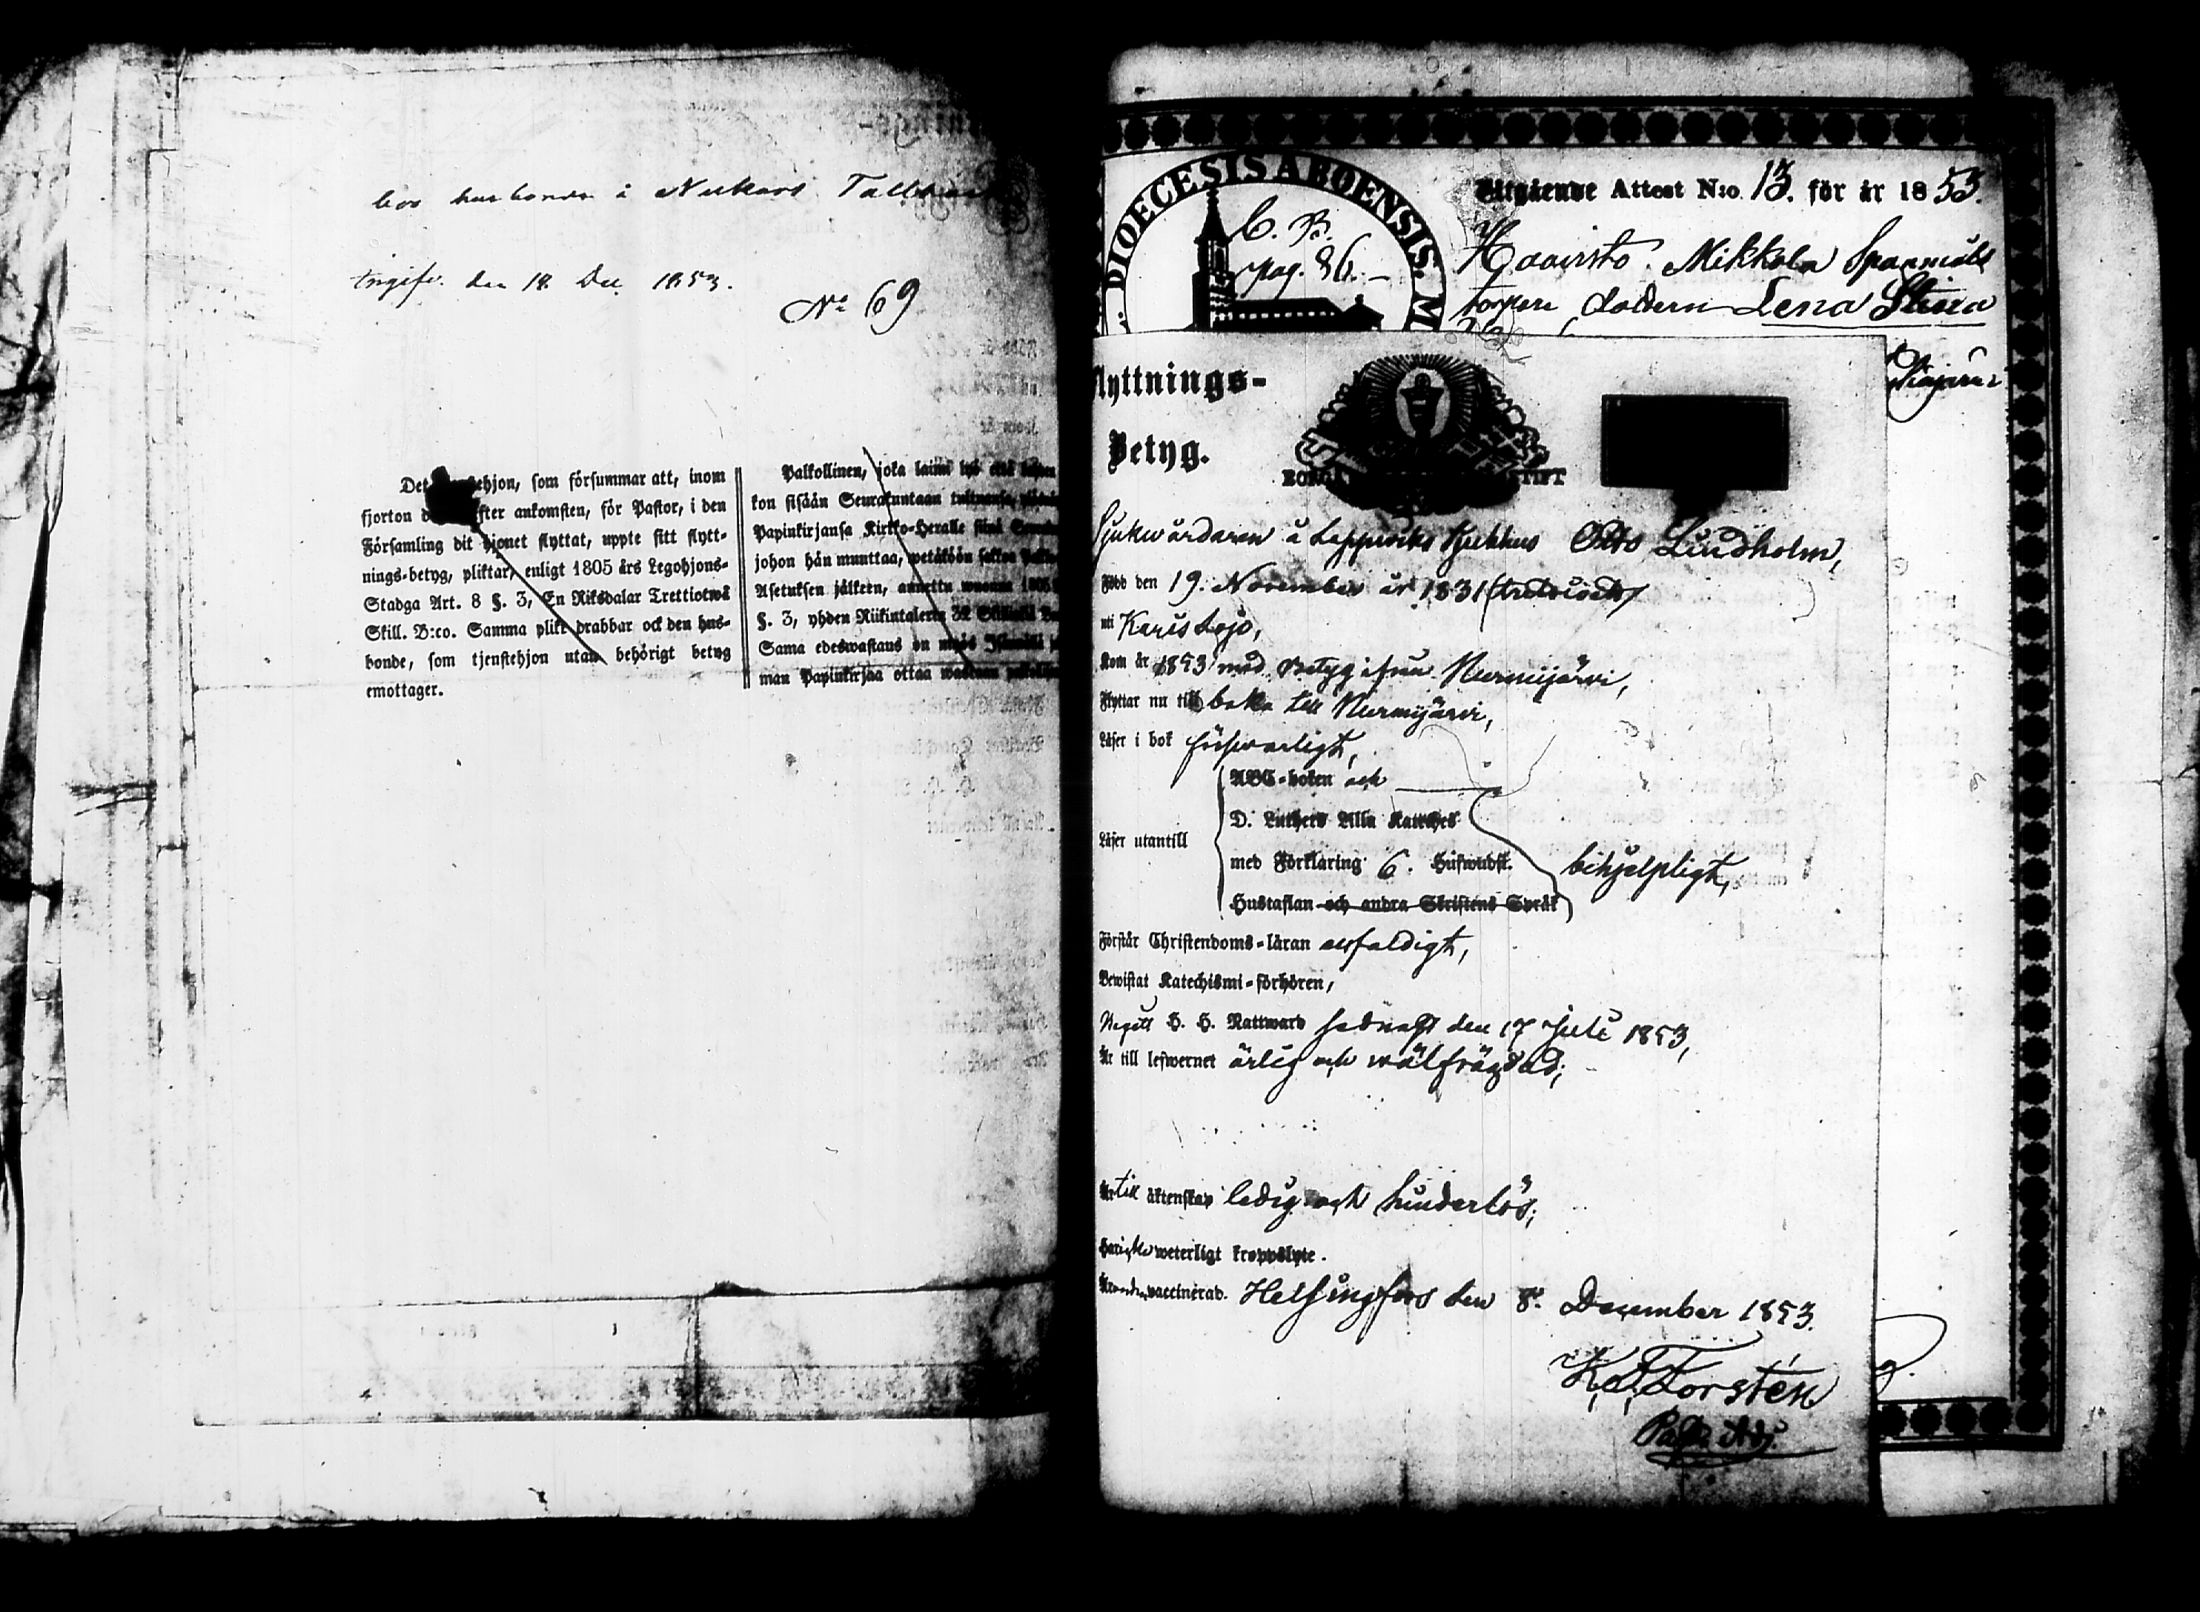 hos husbonde å Nukars
Ingifv. den 18. Dec. 1853.
No 69
fjorton
Det tjenstehjon, som försummar att, inom
fjorton dagar efter ankomsten, för Pastor, i den
Församling dit hjonet flyttat, uppte sitt flytt-
nings-betyg, pliktar, enligt 1805 års Legohjons-
Stadga Art. 8 §. 3, En Riksdalar Trettiotwå
Skill. B:co. Samma plikt drabbar ock den hus-
bonde, som tjenstehjon utan behörigt betyg
emottager.
Palkollinen, joka laimi lyö että
kon sisään Seurakuntaan tultuansa,
Papinkirjansa Kirkko-Heralle siinä
johon hän munttaa, wetäköön sakkoa
Asetuksen jälkeen, annettu wuonna 1805
§. 3, yhden Riikintalerin 32 Skillinkiä
Sama edeswastaus on myös Isännällä
man Papinkirjaa ottaa wastaan
DIOECESIS ABOENSIS. M
C. B.
pag. 86.
Utgående Attest N:o 13. för år 1853.
Haavisto Mikkola
torpare dottern Lena Stina
Flyttnings-
Betyg.
BORGÅ STIFT
Sjukwårdaren å Lappwiks Sjukhus Otto Lindholm,
Född den 19. November år 1831
uti Karislojo,
Kom år 1853 med betyg ifrån Nurmijärvi,
Flyttar nu tillbaka till Nurmijärvi,
Läser i bok försvarligt,
Läser utantill
ABC-boken och
D. Luthers Lilla Kateches
med Förklaring 6. Hufwudst.
Hustaflan och andra Skriftens Språk
behjelpligt,
Förstår Christendoms-läran enfaldigt,
Bewistat Katechismi-förhören,
Begått H. H. Nattward sednast den 17 Juli 1853,
Är till lefwernet ärlig och wälfrägdad;
Är till äktenskap ledig och hinderlös;
Har icke weterligt kroppslyte.
vaccinerad. Helsingfors den 8. December 1853.
K. J. Forstén
Past. Adj.